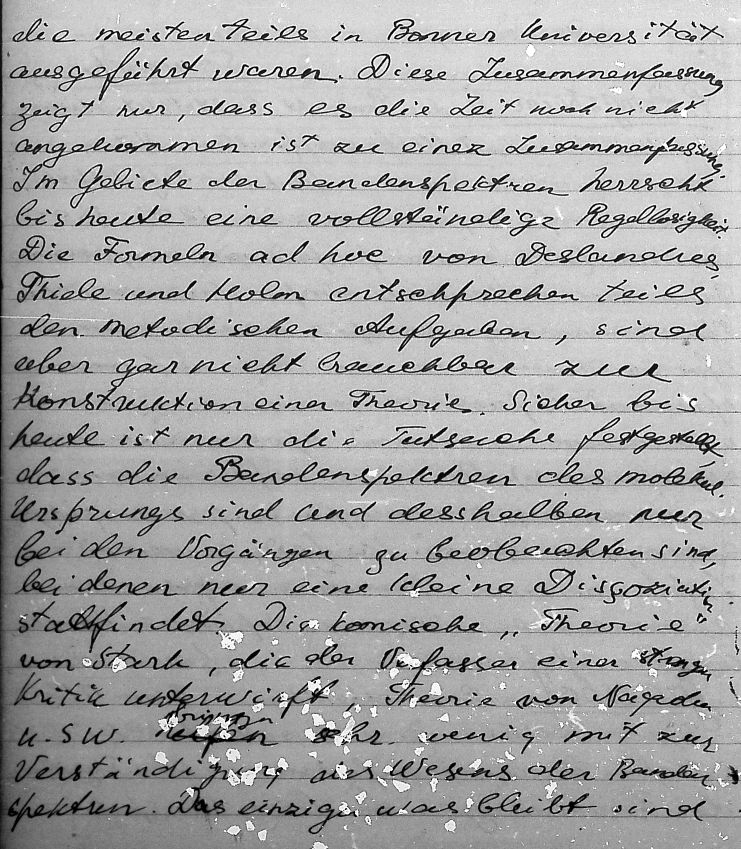 die meistenteils in Bonner Universität
ausgeführt waren. Diese Zusammenfassung
zeigt nur, dass es die Zeit noch nicht
angekommen ist zu einer Zusammenfassung.
Im Gebiete der Bandenspektren herrscht
bis heute eine vollständige Regellosigkeit.
Die Formeln ad hoc von Deslandres,
Thiele und Holm entschprechen teils
den metodischen Aufgaben, sind
aber gar nicht brauchbar zur
Konstruktion einer Theorie. Sicher bis
heute ist nur die Tatsache festgestellt
dass die Bandenspektren des molekul.
Ursprungs sind und desshalben nur
bei den Vorgängen zu beobachten sind,
bei denen nur eine kleine Dissoziation
stattfindet. Die komische „Theorie"
von Stark, die der Verfasser einer strengen
Kritik unterwirft, Theorie von Nagaoka
u.s.w. bringen sehr wenig mit zur
Verständigung des Wesens der Banden
spektren. Das einzige was bleibt sind